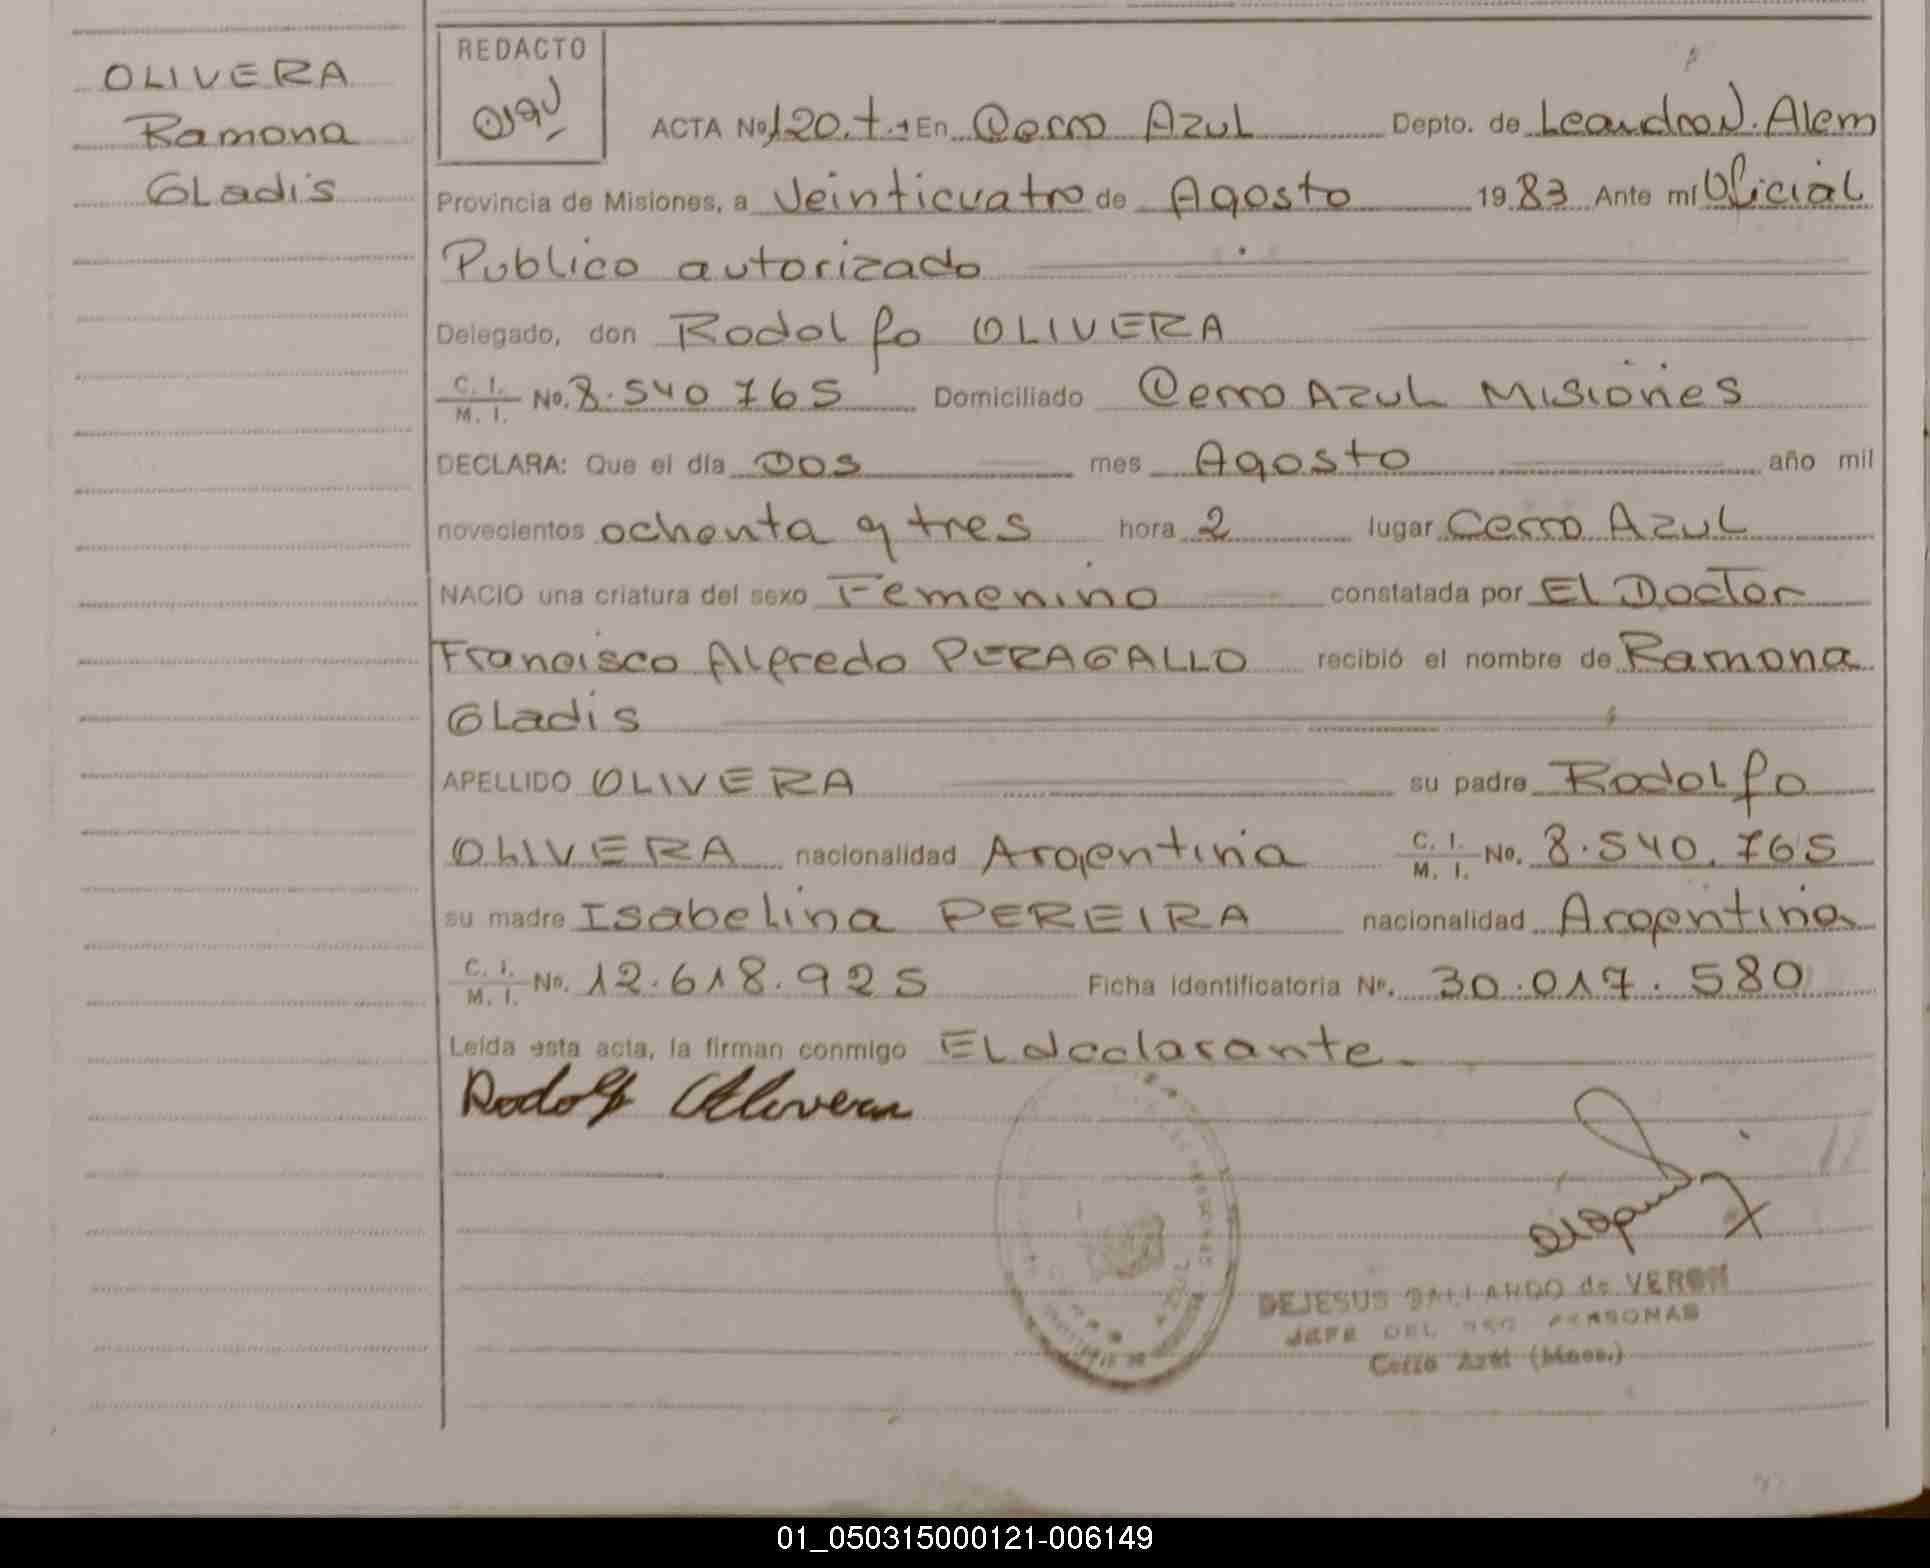 OLIVERA
Ramona
GLadis
REDACTO
ACTA No 120.t. En Cerro AZUL Depto. de Leandro N. Alem
Provincia de Misiones, a Veinticuatro de Agosto 1983 Ante mí Oficial
Publico autorizado
Delegado, don RodoLfo OLIVERA
C. I. / M. I. No. 8.540 765 Domiciliado Cerro AZUL MISiones
DECLARA: Que el día DOS mes Agosto año mil
novecientos ochenta y tres hora 2 lugar Cerro AZUL
NACIO una criatura del sexo Femenino constatada por EL Doctor
Francisco ALfredo PERAGALLO recibió el nombre de Ramona
GLadis
APELLIDO OLIVERA su padre RodoLfo
OLIVERA nacionalidad Argentina C. I. / M. I. No. 8.540.765
su madre Isabelina PEREIRA nacionalidad Argentina
C. I. / M. I. No. 12.618.925 Ficha identificatoria No. 30.017.580
Leída esta acta, la firman conmigo EL declarante.
Rodolf Olivera
DEJESUS GALLARDO de VERON
JEFE DEL REG PERSONAS
Cerro Azul (Mnes.)
01_050315000121-006149